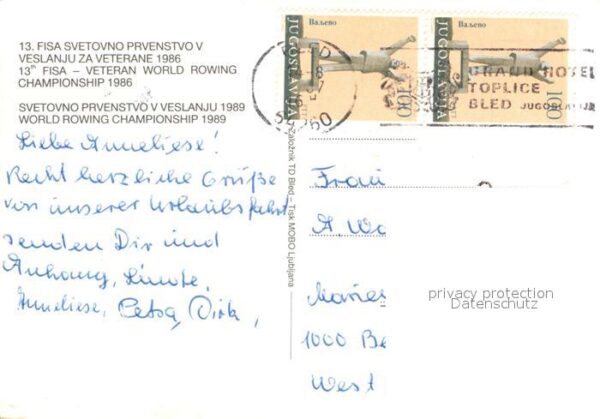 13. FISA SVETOVNO PRVENSTVO V
VESLANJU ZA VETERANE 1986
13th FISA – VETERAN WORLD ROWING
CHAMPIONSHIP 1986
SVETOVNO PRVENSTVO V VESLANJU 1989
WORLD ROWING CHAMPIONSHIP 1989
Liebe Anneliese!
Recht herzliche Grüße
von unserer Urlaubsfahrt
senden Dir und
Anhang,
Anneliese, Petra, Dirk,
Založnik TD Bled – Tisk MOBO Ljubljana
JUGOSLAVIJA
Ваљево
100
JUGOSLAVIJA
Ваљево
100
GRAND HOTEL
TOPLICE
BLED JUGOSLAVIJA
Frau
A. Wo
Marie
1000 Be
West
privacy protection
Datenschutz